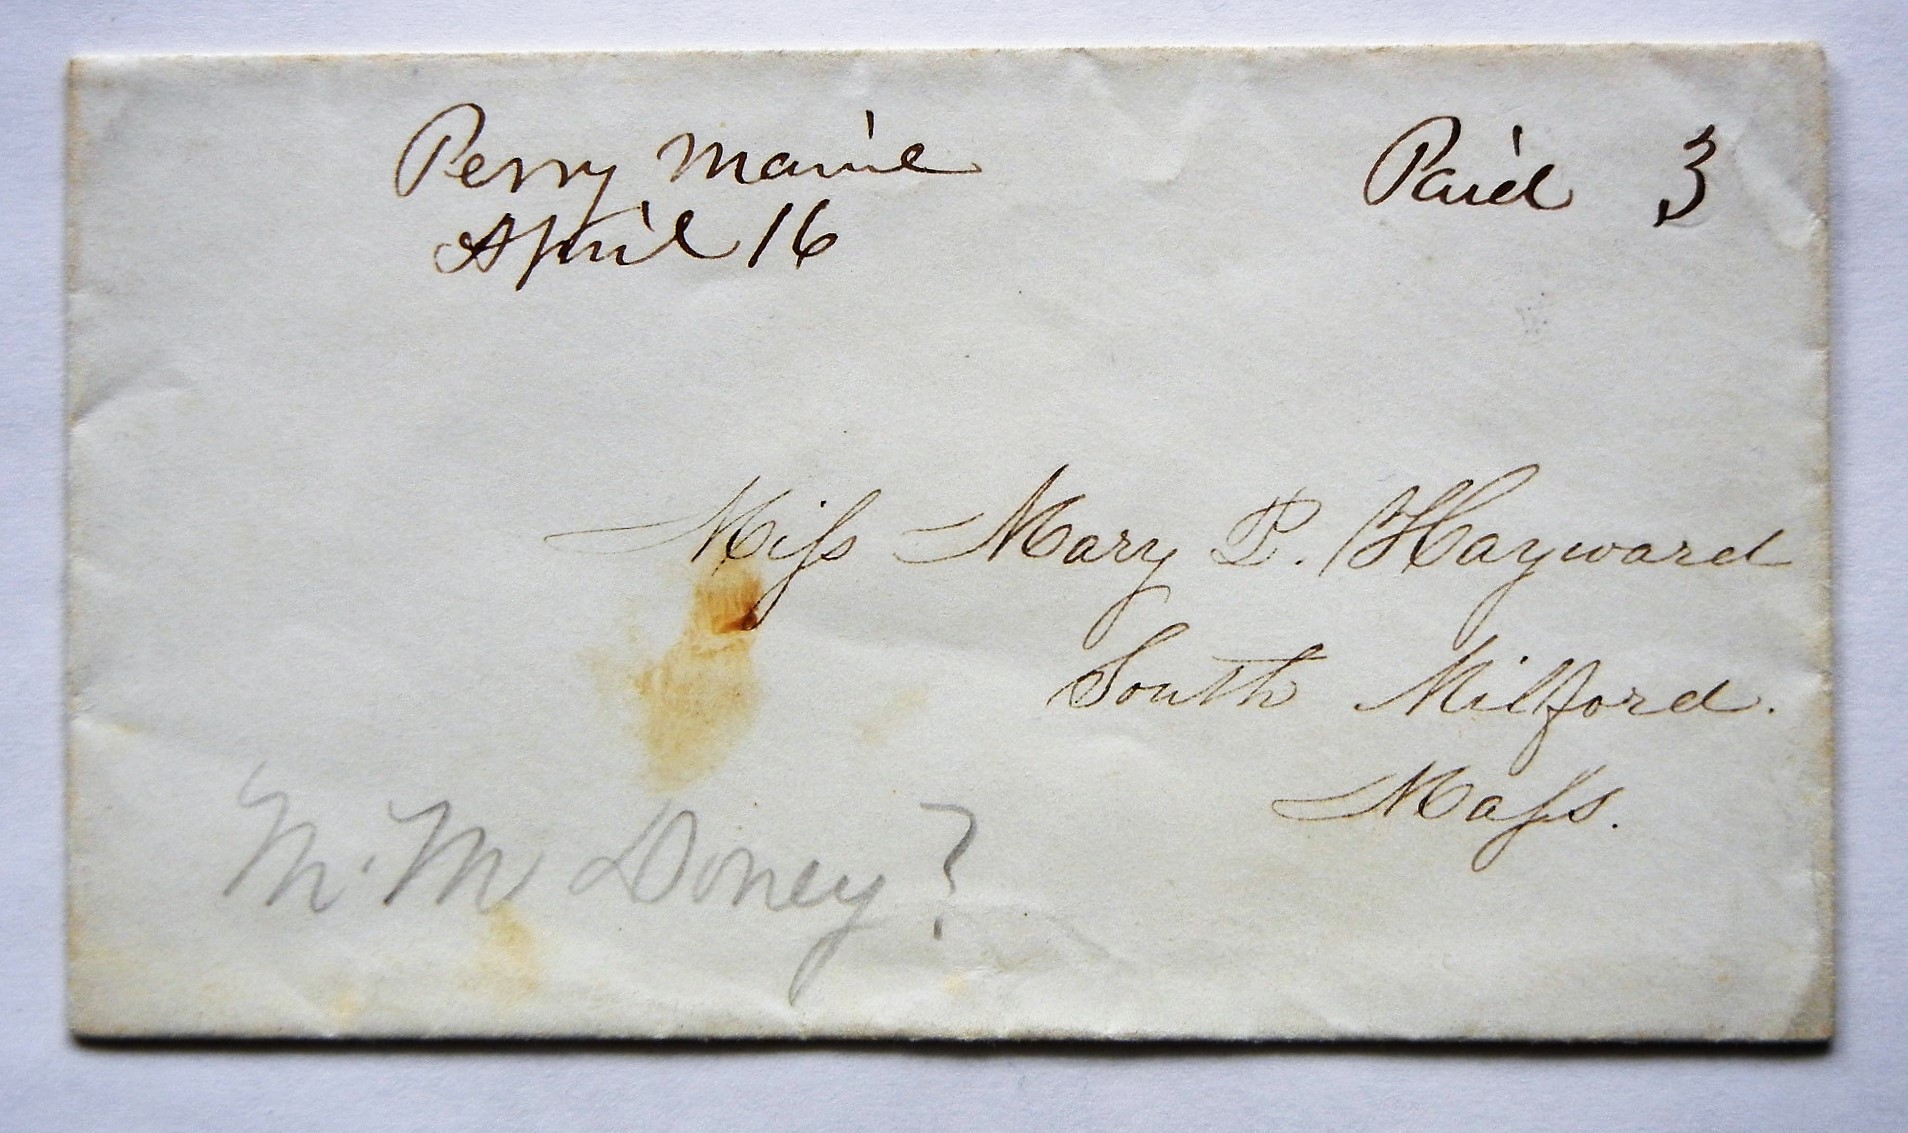 Perry Maine
April 16
Paid 3
Miſs Mary P. Hayward
South Milford.
Maſs.
M. M Doney?